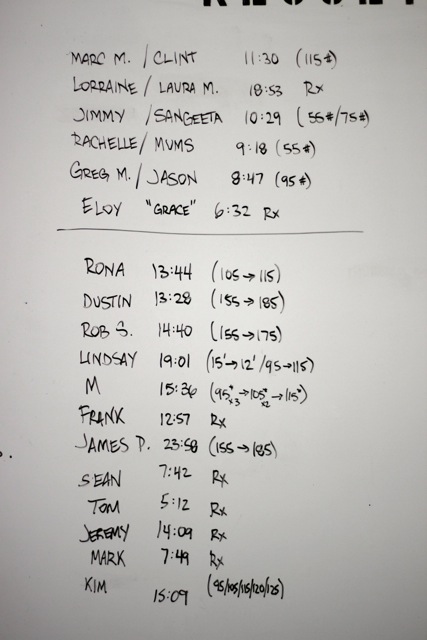 MARC M. / CLINT 11:30 (115#)
LORRAINE / LAURA M. 18:53 Rx
JIMMY / SANGEETA 10:29 (55#/75#)
RACHELLE / MUMS 9:18 (55#)
GREG M. / JASON 8:47 (95#)
ELOY "GRACE" 6:32 Rx
RONA 13:44 (105→115)
DUSTIN 13:28 (155→185)
ROB S. 14:40 (155→175)
LINDSAY 19:01 (15'→12'/95→115)
M 15:36 (95# x3→105# x2→115#)
FRANK 12:57 Rx
JAMES P. 23:58 (155→185)
SEAN 7:42 Rx
TOM 5:12 Rx
JEREMY 14:09 Rx
MARK 7:49 Rx
KIM 15:09 (95/105/115/120/125)